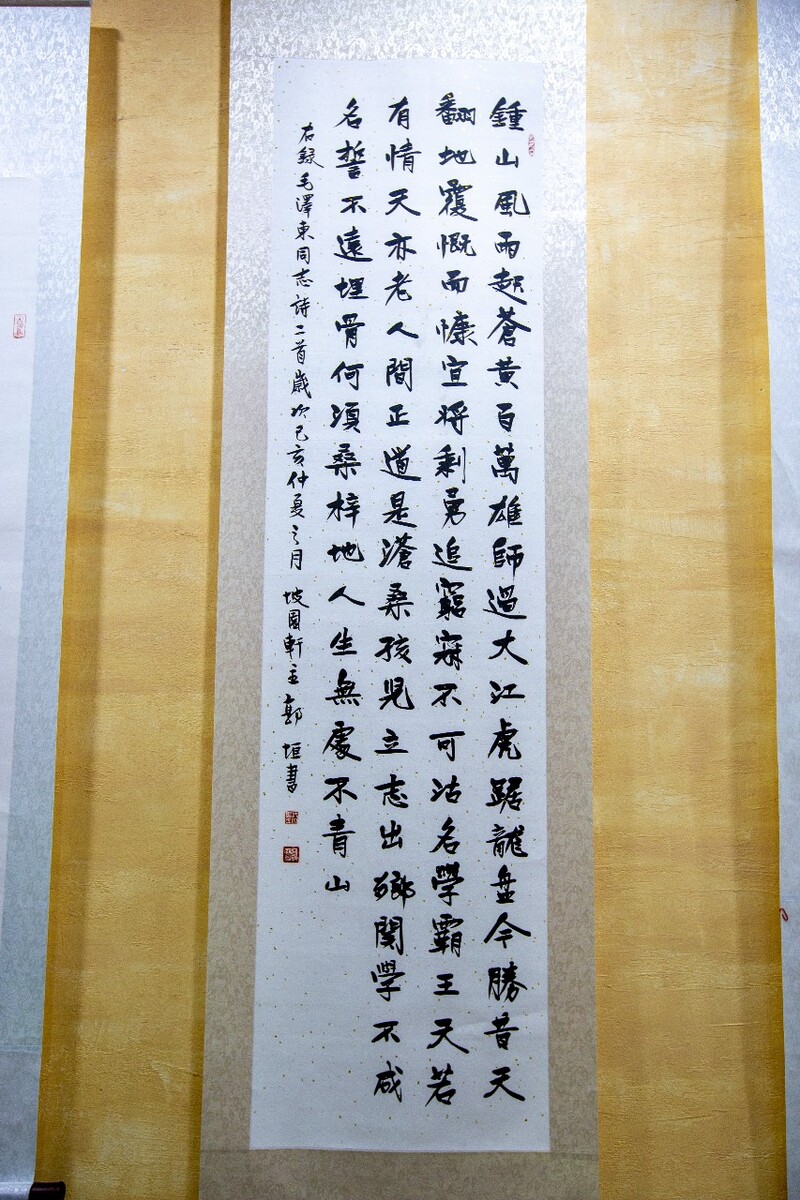 鍾山風雨起蒼黄百萬雄師過大江虎踞龍盘今勝昔天
翻地覆慨而慷宜将剩勇追窮寇不可沽名學霸王天若
有情天亦老人間正道是滄桑孩児立志出鄉関學不成
名誓不遠埋骨何須桑梓地人生無處不青山
右録毛澤東同志詩二首歲次己亥仲夏之月 坡園軒主郭垣書